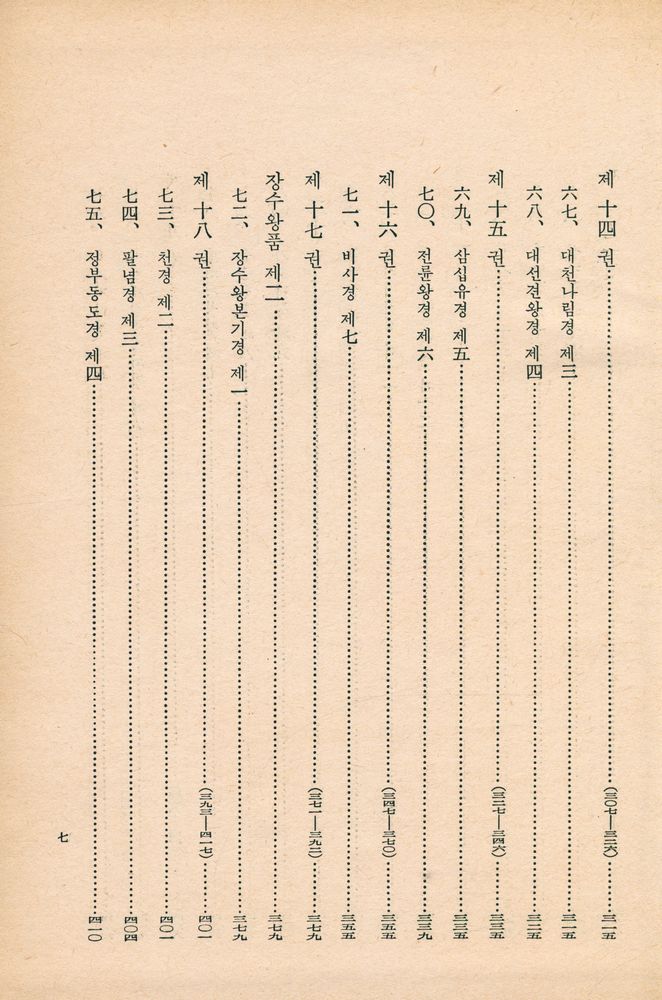 제 十四 권 (三〇七—三二六) 三一五
六七、 대천나림경 제三 三一五
六八、 대선견왕경 제四 三二五
제 十五 권 (三二七—三四六) 三三五
六九、 삼십유경 제五 三三五
七〇、 전륜왕경 제六 三三九
제 十六 권 (三四七—三七〇) 三五五
七一、 비사경 제七 三五五
제 十七 권 (三七一—三九二) 三七九
장수왕품 제二 三七九
七二、 장수왕본기경 제一 三七九
제 十八 권 (三九三—四一七) 四〇一
七三、 천경 제二 四〇一
七四、 팔념경 제三 四〇四
七五、 정부동도경 제四 四一〇
七